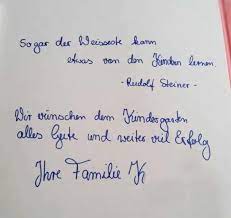 Sogar der Weiseste kann
etwas von den Kindern lernen.
- Rudolf Steiner -
Wir wünschen dem Kindergarten
alles Gute und weiter viel Erfolg
Ihre Familie K